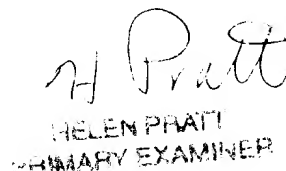 H Pratt
HELEN PRATT
PRIMARY EXAMINER